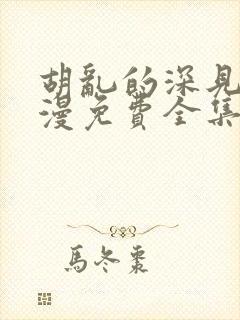 胡亂的深見
漫免費全集
馬冬棗